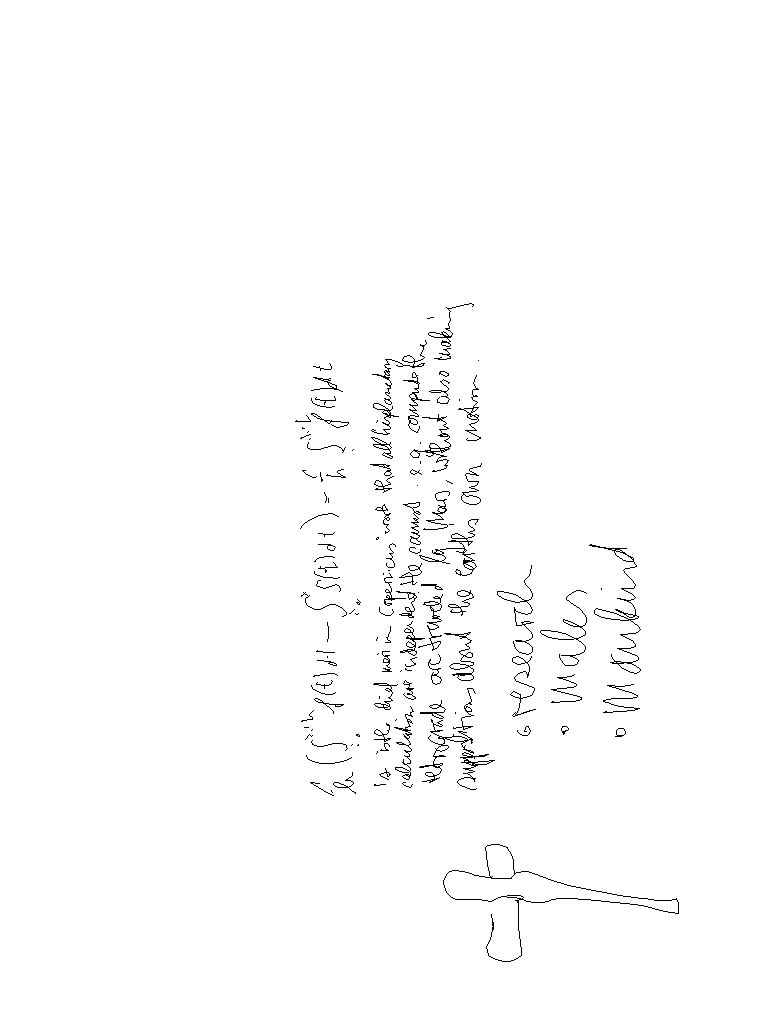 1/h (∫ f(t)dt − ∫ f(t)dt) = 1/h ∫ f(t)dt
is the chief merit in Copernicus' work that all his planetary
calculation are independent. He cannot e.g. compute the
retrograde arc traveled by Mars, without also making
suppositions about the earth's own motion.
research
Males
Mankind